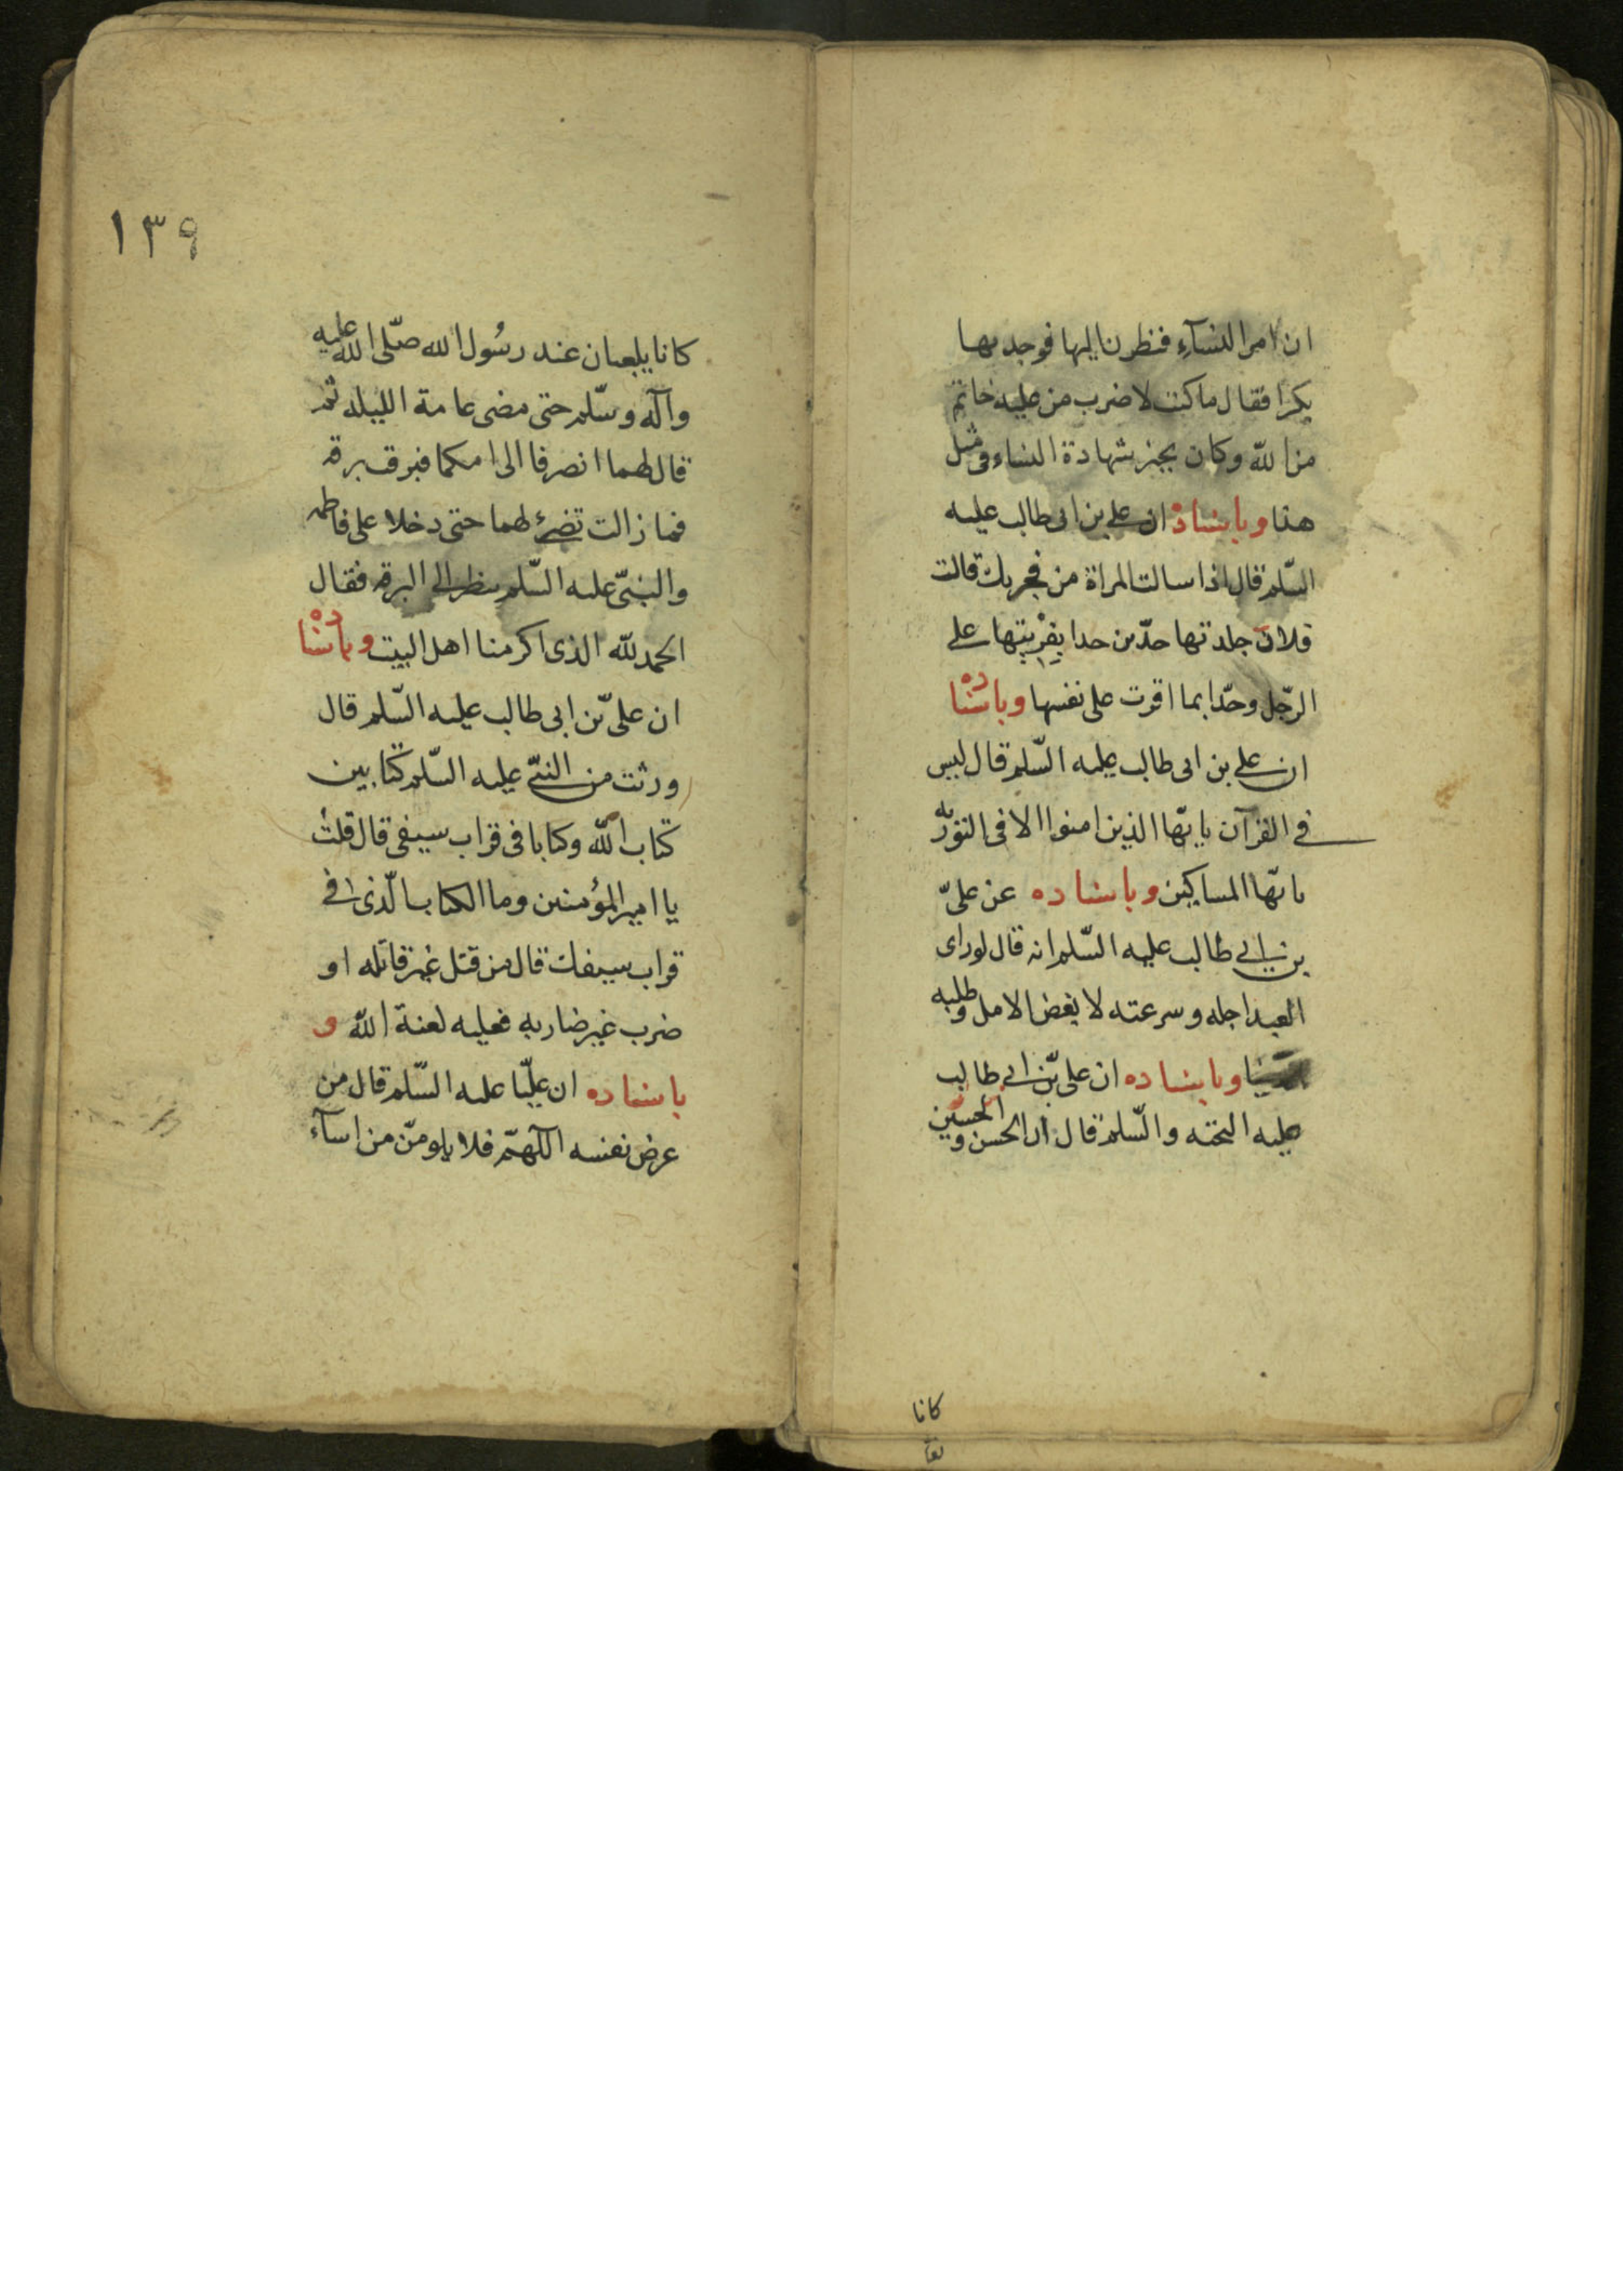 ان امر النسآء فنظرن اليها فوجدنها
بكرا فقال ما كنت لاضرب من عليه خاتم
من الله وكان يجيز شهادة النساء فى مثل
هذا وباسناده ان على بن ابى طالب عليه
السّلم قال اذا سالت المراة من فجر بك قالت
فلان جلدتها حدّين حدا بفريتها على
الرّجل وحدّا بما اقرت على نفسها وباسناده
ان على بن ابى طالب عليه السّلم قال ليس
فى القرآن يا يّها الذين امنوا الا فى التوریه
يا يّها المساكين وباسناده عن علىّ
بن ابى طالب عليه السّلم انه قال لو راى
العبد اجله وسرعته لا بغض الامل وطلبه
وباسناده ان على بّن ابى طالب
عليه التحته والسّلم قال ان الحسن والحسين
كانا
١٣٩
كانا يلعبان عند رسُول الله صلّى الله عليه
وآله وسّلم حتى مضى عامة الليله ثم
قال لهما انصرفا الى امكما فبرقت برقه
فما زالت تضئ لهما حتى دخلا على فاطمه
والنبىّ عليه السّلم ينظر الى البرقه فقال
الحمد لله الذى اكرمنا اهل البيت وباسناده
ان علىّ بن ابى طالب عليه السّلم قال
ورثت من النبىّ عليه السّلم كتابين
كتاب الله وكتابا فى قراب سيفى قال قلت
يا امير المؤمنين وما الكتاب الّذى فى
قراب سيفك قال من قتل غير قاتله او
ضرب غير ضاربه فعليه لعنة الله و
باسناده ان عليّا عليه السّلم قال من
عرض نفسه اللّهمّ فلا يلومّن من اسآء